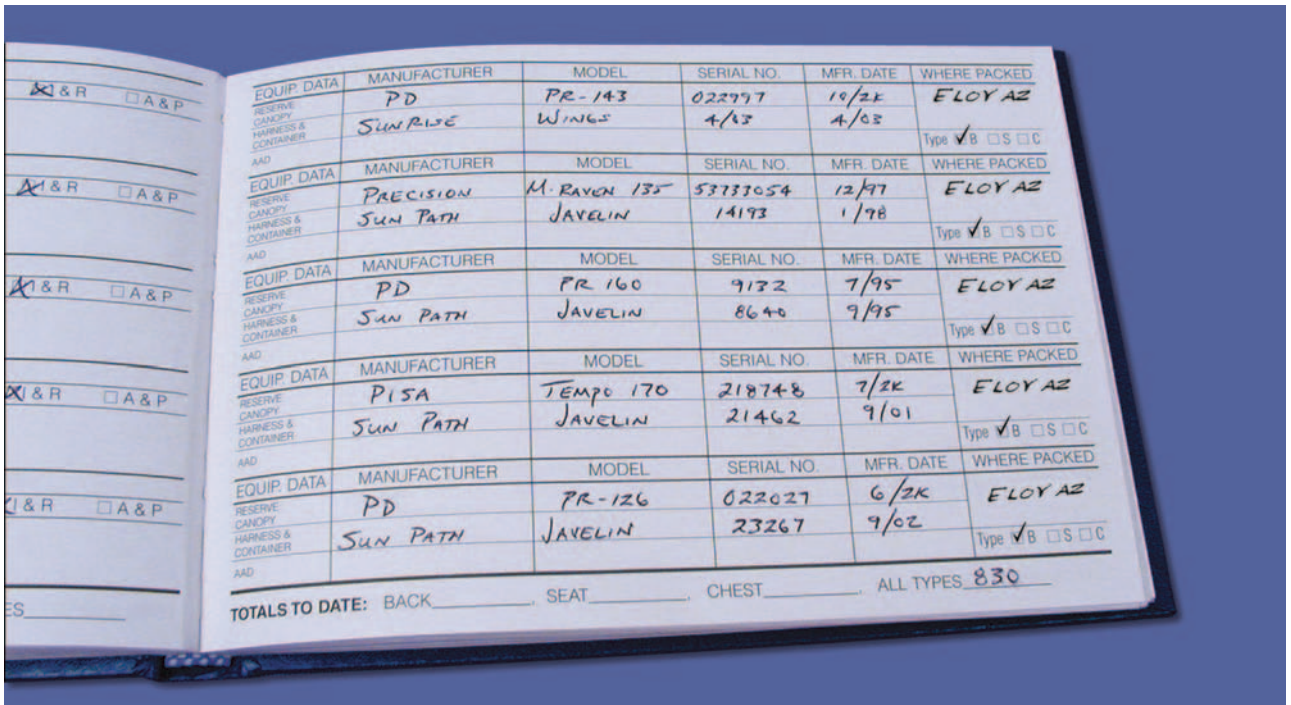 I & R A & P
EQUIP. DATA MANUFACTURER MODEL SERIAL NO. MFR. DATE WHERE PACKED
RESERVE CANOPY PD PR-143 022997 10/2K ELOY AZ
HARNESS & CONTAINER SUNRISE WINGS 4/03 4/03
AAD Type B S C
I & R A & P
EQUIP. DATA MANUFACTURER MODEL SERIAL NO. MFR. DATE WHERE PACKED
RESERVE CANOPY PRECISION M. RAVEN 135 53733054 12/97 ELOY AZ
HARNESS & CONTAINER SUN PATH JAVELIN 14193 1/98
AAD Type B S C
I & R A & P
EQUIP. DATA MANUFACTURER MODEL SERIAL NO. MFR. DATE WHERE PACKED
RESERVE CANOPY PD PR 160 9132 7/95 ELOY AZ
HARNESS & CONTAINER SUN PATH JAVELIN 8640 9/95
AAD Type B S C
I & R A & P
EQUIP. DATA MANUFACTURER MODEL SERIAL NO. MFR. DATE WHERE PACKED
RESERVE CANOPY PISA TEMPO 170 218748 7/2K ELOY AZ
HARNESS & CONTAINER SUN PATH JAVELIN 21462 9/01
AAD Type B S C
I & R A & P
EQUIP. DATA MANUFACTURER MODEL SERIAL NO. MFR. DATE WHERE PACKED
RESERVE CANOPY PD PR-126 022027 6/2K ELOY AZ
HARNESS & CONTAINER SUN PATH JAVELIN 23267 9/02
AAD Type B S C
ES
TOTALS TO DATE: BACK , SEAT , CHEST , ALL TYPES 830